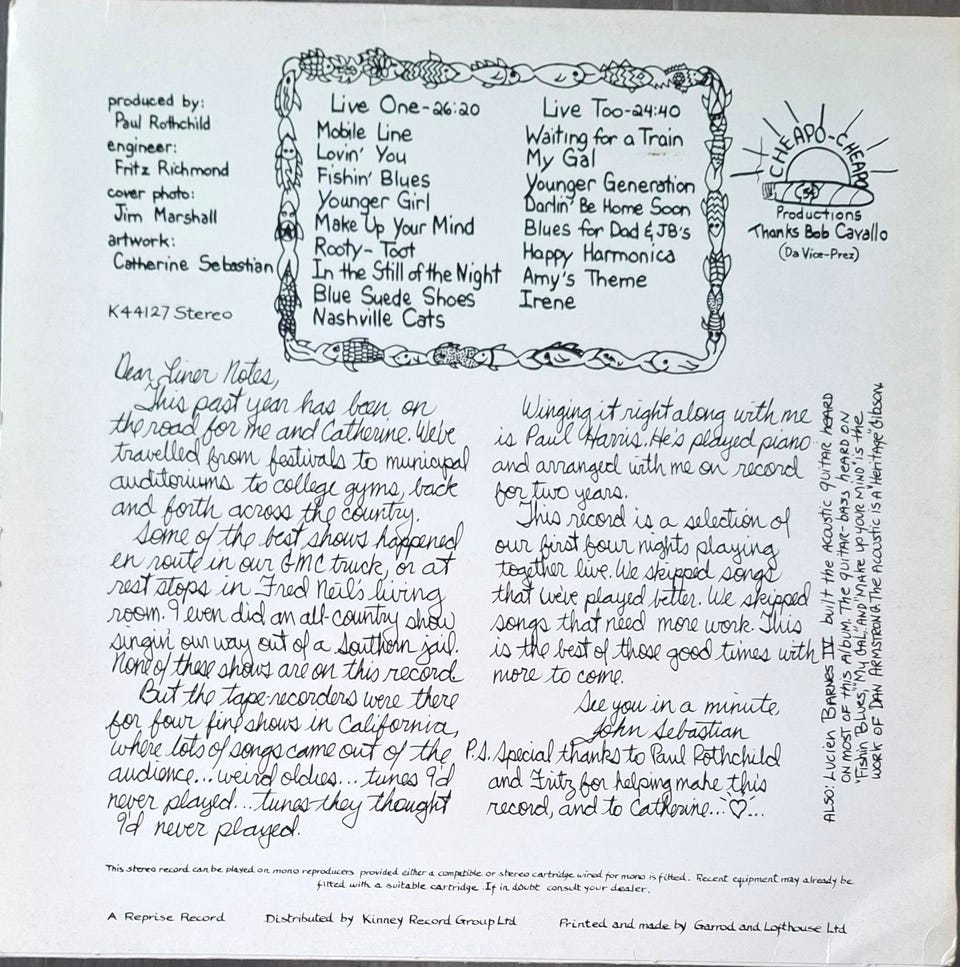 produced by:
Paul Rothchild
engineer:
Fritz Richmond
cover photo:
Jim Marshall
artwork:
Catherine Sebastian
K44127 Stereo
Live One-26:20
Mobile Line
Lovin' You
Fishin' Blues
Younger Girl
Make Up Your Mind
Rooty-Toot
In the Still of the Night
Blue Suede Shoes
Nashville Cats
Live Too-24:40
Waiting for a Train
My Gal
Younger Generation
Darlin' Be Home Soon
Blues for Dad & JB's
Happy Harmonica
Amy's Theme
Irene
CHEAPO-CHEAPO
Productions
Thanks Bob Cavallo
(Da Vice-Prez)
Dear Liner Notes,
This past year has been on
the road for me and Catherine. We've
travelled from festivals to municipal
auditoriums to college gyms, back
and forth across the country.
Some of the best shows happened
en route in our GMC truck, or at
rest stops in Fred Neil's living
room. I even did an all-country show
singin' our way out of a Southern jail.
None of these shows are on this record
But the tape-recorders were there
for four fine shows in California,
where lots of songs came out of the
audience... weird oldies... tunes I'd
never played... tunes they thought
I'd never played.
Winging it right along with me
is Paul Harris. He's played piano
and arranged with me on record
for two years.
This record is a selection of
our first four nights playing
together live. We skipped songs
that we've played better. We skipped
songs that need more work. This
is the best of those good times with
more to come.
See you in a minute,
John Sebastian
P.S. Special thanks to Paul Rothchild
and Fritz for helping make this
record, and to Catherine...♡...
ALSO: LUCIEN BARNES IV built the ACOUSTIC GUITAR HEARD
ON MOST OF THIS ALBUM. THE GUITAR-BASS HEARD ON
"FISHIN BLUES," "MY GAL," AND "MAKE UP YOUR MIND" IS THE
WORK OF DAN ARMSTRONG. THE ACOUSTIC IS A "HERITAGE" GIBSON.
This stereo record can be played on mono reproducers provided either a compatible or stereo cartridge wired for mono is fitted. Recent equipment may already be
fitted with a suitable cartridge. If in doubt consult your dealer.
A Reprise Record Distributed by Kinney Record Group Ltd Printed and made by Garrod and Lofthouse Ltd